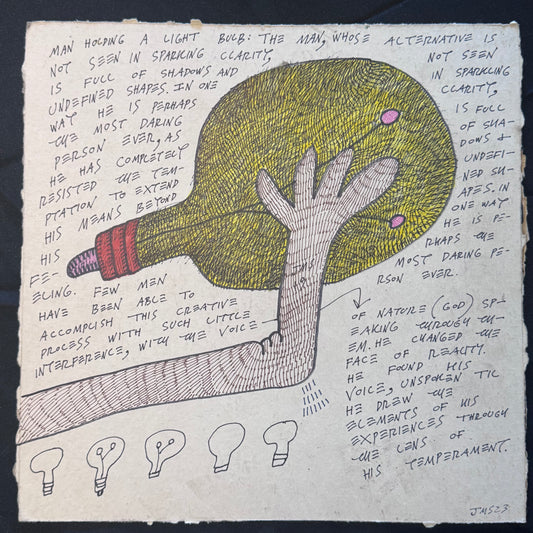 MAN HOLDING A LIGHT BULB: THE MAN, WHOSE ALTERNATIVE IS
NOT SEEN IN SPARKLING CLARITY,
IS FULL OF SHADOWS AND
UNDEFINED SHAPES. IN ONE
WAY HE IS PERHAPS
THE MOST DARING
PERSON EVER, AS
HE HAS COMPLETELY
RESISTED THE TEM-
PTATION TO EXTEND
HIS MEANS BEYOND
HIS
FE-
ELING. FEW MEN
HAVE BEEN ABLE TO
ACCOMPLISH THIS CREATIVE
PROCESS WITH SUCH LITTLE
INTERFERENCE, WITH THE VOICE
NOT SEEN
IN SPARKLING
CLARITY,
IS FULL
OF SHA-
DOWS &
UNDEFI-
NED SH-
APES. IN
ONE WAY
HE IS PE-
RHAPS THE
MOST DARING PE-
RSON EVER.
OF NATURE (GOD) SP-
EAKING THROUGH TH-
EM. HE CHANGED THE
FACE OF REALITY.
HE FOUND HIS
VOICE, UNSPOKEN TIL
HE DREW THE
ELEMENTS OF HIS
EXPERIENCES THROUGH
THE LENS OF
HIS TEMPERAMENT.
JMS23